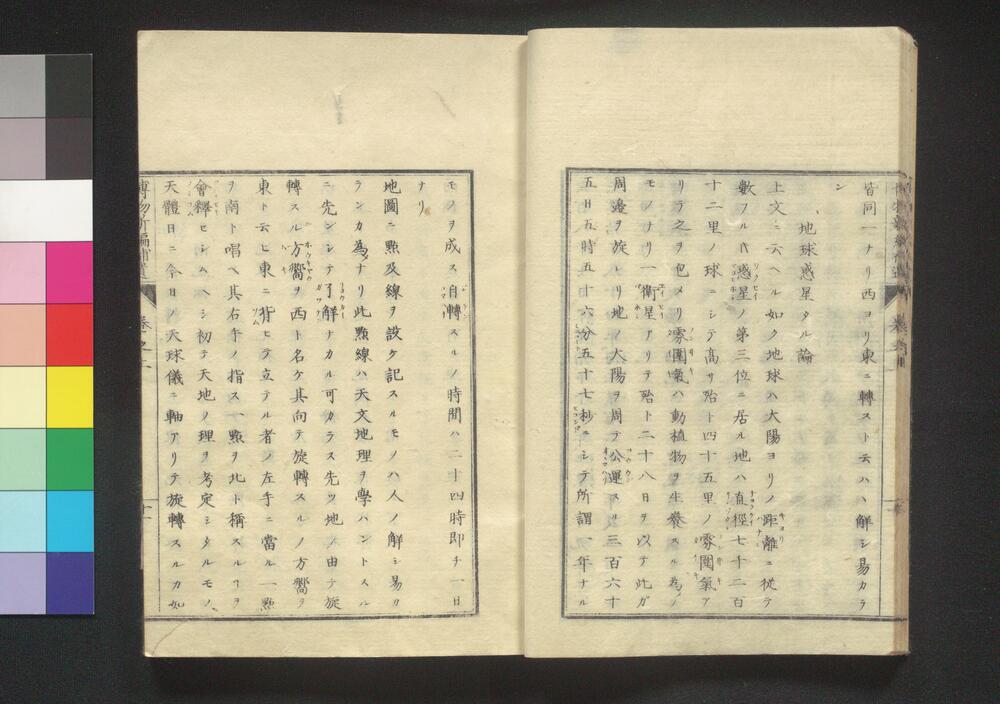 皆同一ナリ西ヨリ東ニ轉スト云ハヽ解シ易カラ
ン
地球惑星タル論
上文ニ云ヘル如ク地球ハ大陽ヨリノ距離ニ從テ
數フレハ惑星ノ第三位ニ居ル地ハ直徑七千二百
十二里ノ球ニシテ高サ殆ト四十五里ノ雰圍氣ア
リテ之ヲ包メリ雰圍氣ハ動植物ヲ生養スル為ノ
モノナリ一衛星アリテ殆ト二十八日ヲ以テ此ガ
周邉ヲ旋レリ地ノ大陽ヲ周テ公運スルハ三百六十
五日五時五十六分五十七秒ニシテ所謂一年ナル
モノヲ成ス自轉スルノ時間ハ二十四時即チ一日
ナリ
地圖ニ點及線ヲ設ケ記スルモノハ人ノ解シ易カ
ランカ為ナリ此點線ハ天文地理ヲ學ハントスル
ニ先ンシテ了解ナカル可カラス先ツ地ノ由テ旋
轉スル方嚮ヲ西ト名ケ其向テ旋轉スルノ方嚮ヲ
東ト云ヒ東ニ背ヒテ立テル者ノ左手ニ當ル一點
ヲ南ト唱ヘ其右手ノ指ス一點ヲ北ト稱スルヿヲ
會釋セシムヘシ初テ天地ノ理ヲ考定シタルモノ
天體日ニ今日ノ天球儀ニ軸アリテ旋轉スルカ如
博物新編補遺 卷之上